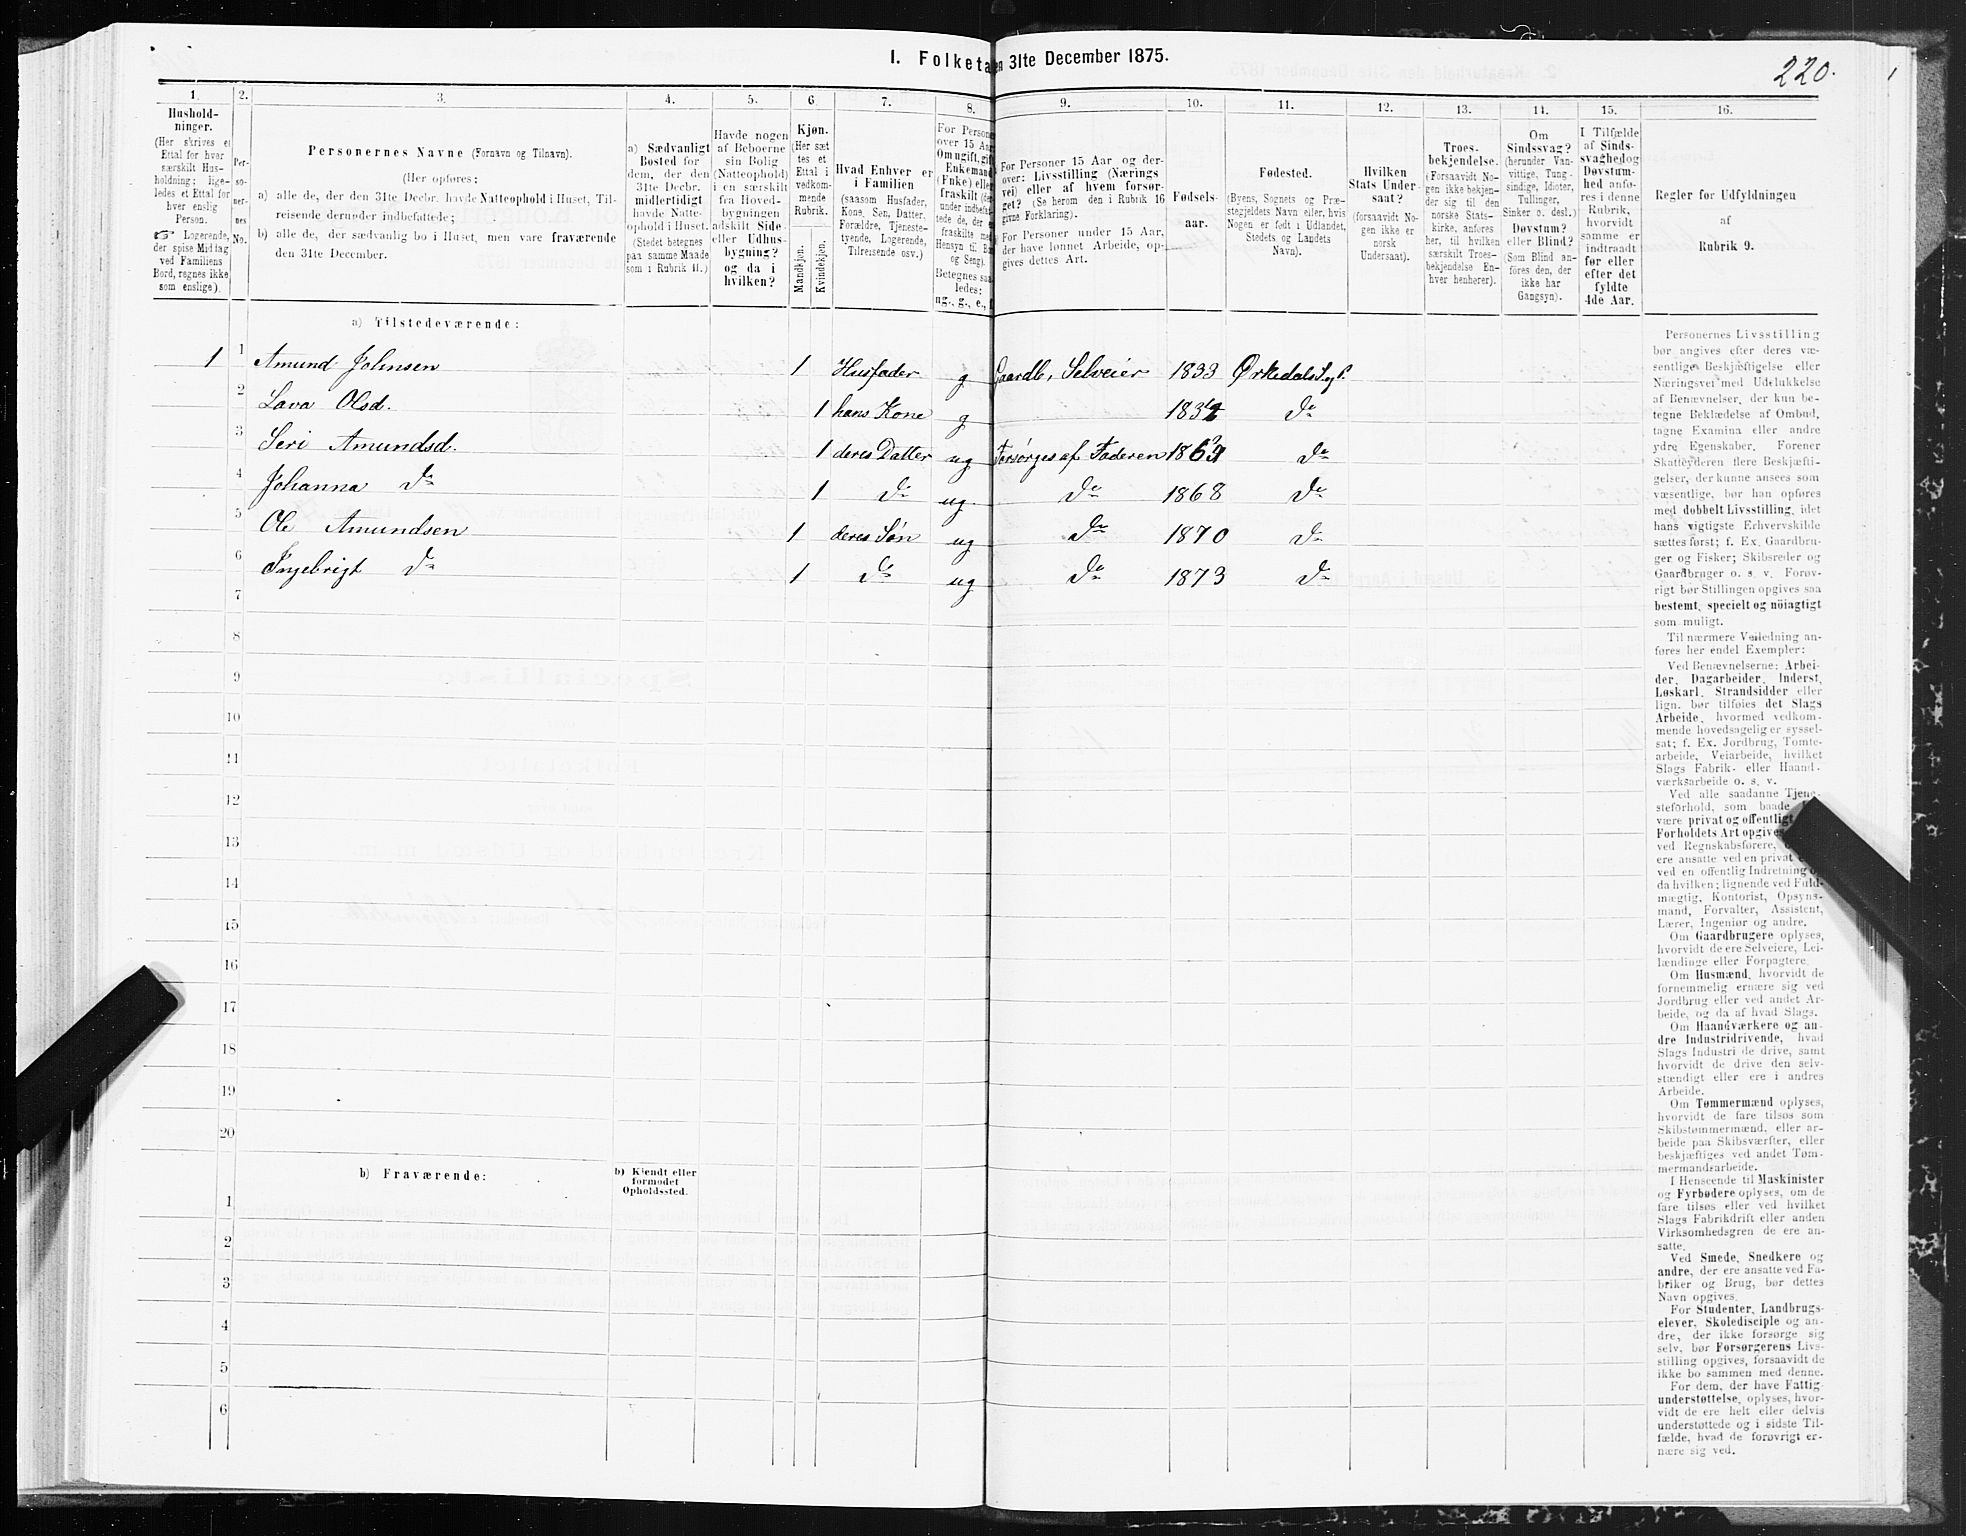 I. Folketa en 31te December 1875.
220.
1. 2. 3. 4. 5. 6 7. 8. 9. 10. 11. 12. 13. 14. 15. 16.
Hushold-
ninger.
(Her skrives et
Ettal for hver
særskilt Hus-
holdning; lige-
ledes et Ettal for
hver enslig
Person.
☞ Logerende,
der spise Middag
ved Familiens
Bord, regnes ikke
som enslige).
Per-
so-
ner-
nes
No.
Personernes Navne (Fornavn og Tilnavn).
(Her opføres:
a) alle de, der den 31te Decbr. havde Natteophold i Huset, Til-
reisende derunder indbefattede;
b) alle de, der sædvanlig bo i Huset, men vare fraværende
den 31te December.
a) Sædvanligt
Bosted for
dem, der den
31te Decbr.
midlertidigt
havde Natte-
ophold i Huset.
(Stedet betegnes
paa samme Maade
som i Rubrik 11.)
Havde nogen
af Beboerne
sin Bolig
(Natteophold)
i en særskilt
fra Hoved-
bygningen
adskilt Side-
eller Udhus-
bygning?
og da i
hvilken?
Kjøn.
(Her sæt
tes et
Ettal i
vedkom-
mende
Rubrik.
Mandkjøn.
Kvindekjøn.
Hvad Enhver er
i Familien
(saasom Husfader,
Kone, Søn, Datter,
Forældre, Tjeneste-
tyende, Logerende,
Tilreisende osv.)
For Persone
over 15 Aar
Om ugift, gift
Enkemand
(Enke) elle
fraskilt
under indbefat
tede de, der e
fraskilte me
Hensyn til B
og Seng).
Betegnes saa
ledes:
ug., g., e., f
For Personer 15 Aar og der-
over: Livsstilling (Nærings
vei) eller af hvem forsør-
get? (Se herom den i Rubrik 16
givne Forklaring).
For Personer under 15 Aar,
der have lønnet Arbeide, op-
gives dettes Art.
Fødsels-
aar.
Fødested.
(Byens, Sognets og Præ-
stegjeldets Navn eller, hvis
Nogen er født i Udlandet,
Stedets og Landets
Navn).
Hvilken
Stats Under-
saat?
(forsaavidt No-
gen ikke er
norsk
Undersaat).
Troes-
bekjendelse.
(Forsaavidt No-
gen ikke bekjen-
der sig til den
norske Stats-
kirke, anføres
her, til hvilken
særskilt Troes-
bekjendelse En-
hver henhører).
Om
Sindssvag?
(herunder Van-
vittige, Tung-
sindige, Idioter,
Tullinger,
Sinker o. desl.)
Døvstum?
eller Blind?
(Som Blind an-
føres den, der
ikke har
Gangsyn).
I Tilfælde
af Sinds-
svaghed og
Døvstum-
hed anfø-
res i denne
Rubrik,
hvorvidt
samme er
indtraadt
før eller
efter det
fyldte
4de Aar.
Regler før Udfyldningen
af
Rubrik 9.
a) Tilstedeværende:
1 1 Amund Johnsen 1 Husfader g Gaardb, Selveier 1833 Ørkedals S. og P.
2 Olsd. 1 hans Kone g Do
3 Seri Amundsd. 1 deres Datter ug Forsørges af Faderen Do
4 Johanna Do 1 Do ug Do 1868 Do
5 Ole Amundsen 1 deres Søn ug Do 1870 Do
6 Ingebrigt Do 1 Do ug Do 1873 Do
7
8
9
10
11
12
13
14
15
16
17
18
19
20
b) Fraværende:
b) Kjendt eller
formodet
Opholdssted.
1
2
3
4
5
6
Personernes Livsstilling
bør angives efter deres væ-
sentlige Beskjæftigelse eller
Næringsvei med Udelukkelse
af Benævnelser, der kun be-
tegne Beklædelse af Ombud,
tagne Examina eller andre
ydre Egenskaber. Forener
Skatteyderen flere Beskjæfti-
gelser, der kunne ansees som
væsentlige, bør han opføres
med dobbelt Livsstilling, idet
hans vigtigste Erhvervskilde
sættes først; f. Ex. Gaardbru-
ger og Fisker; Skibsreder og
Gaardbruger o. s. v. Forøv-
rigt bør Stillingen opgives saa
bestemt, specielt og nöiagtigt
som muligt.
Til nærmere Veiledning an-
føres her endel Exempler:
Ved Benævnelserne: Arbei-
der, Dagarbeider, Inderst,
Løskarl, Strandsidder eller
lign. bør tilføies det Slags
Arbeide, hvormed vedkom-
mende hovedsagelig er syssel-
sat; f. Ex. Jordbrug, Tomte-
arbeide, Veiarbeide, hvilket
Slags Fabrik- eller Haand-
værksarbeide o. s. v.
Ved alle saadanne Tjene-
steforhold, som baade
være privat og offentligt
Forholdets Art opgives
ved Regnskabsførere,
ere ansatte ved en privat
ved en offentlig Indretning
da hvilken; lignende ved Fuld-
mægtig, Kontorist, Opsyns-
mand, Forvalter, Assistent,
Lærer, Ingeniør og andre.
Om Gaardbrugere oplyses,
hvorvidt de ere Selveiere, Lei-
lændinge eller Forpagtere.
Om Husmænd, hvorvidt de
fornemmelig ernære sig ved
Jordbrug eller ved andet Ar-
beide, og da af hvad Slags.
Om Haandværkere og an-
dre Industridrivende, hvad
Slags Industri de drive, samt
hvorvidt de drive den selv-
stændigt eller ere i andres
Arbeide.
Om Tømmermænd oplyses,
hvorvidt de fare tilsøs som
Skibstømmermænd, eller ar-
beide paa Skibsværfter, eller
beskjæftiges ved andet Tøm-
mermandsarbeide.
I Henseende til Maskinister
og Fyrbødere oplyses, om de
fare tilsøs eller ved hvilket
Slags Fabrikdrift eller anden
Virksomhedsgren de ere an-
satte.
Ved Smede, Snedkere og
andre, der ere ansatte ved Fa-
briker og Brug, bør dettes
Navn opgives.
For Studenter, Landbrugs-
elever, Skoledisciple og an-
dre, der ikke forsørge sig
selv, bør Forsørgerens Livs-
stilling opgives, forsaavidt de
ikke bo sammen med denne.
For dem, der have Fattig-
understøttelse, oplyses, hvor-
vidt de ere helt eller delvis
understøttede og i sidste Til-
fælde, hvad de forøvrigt er-
nære sig ved.